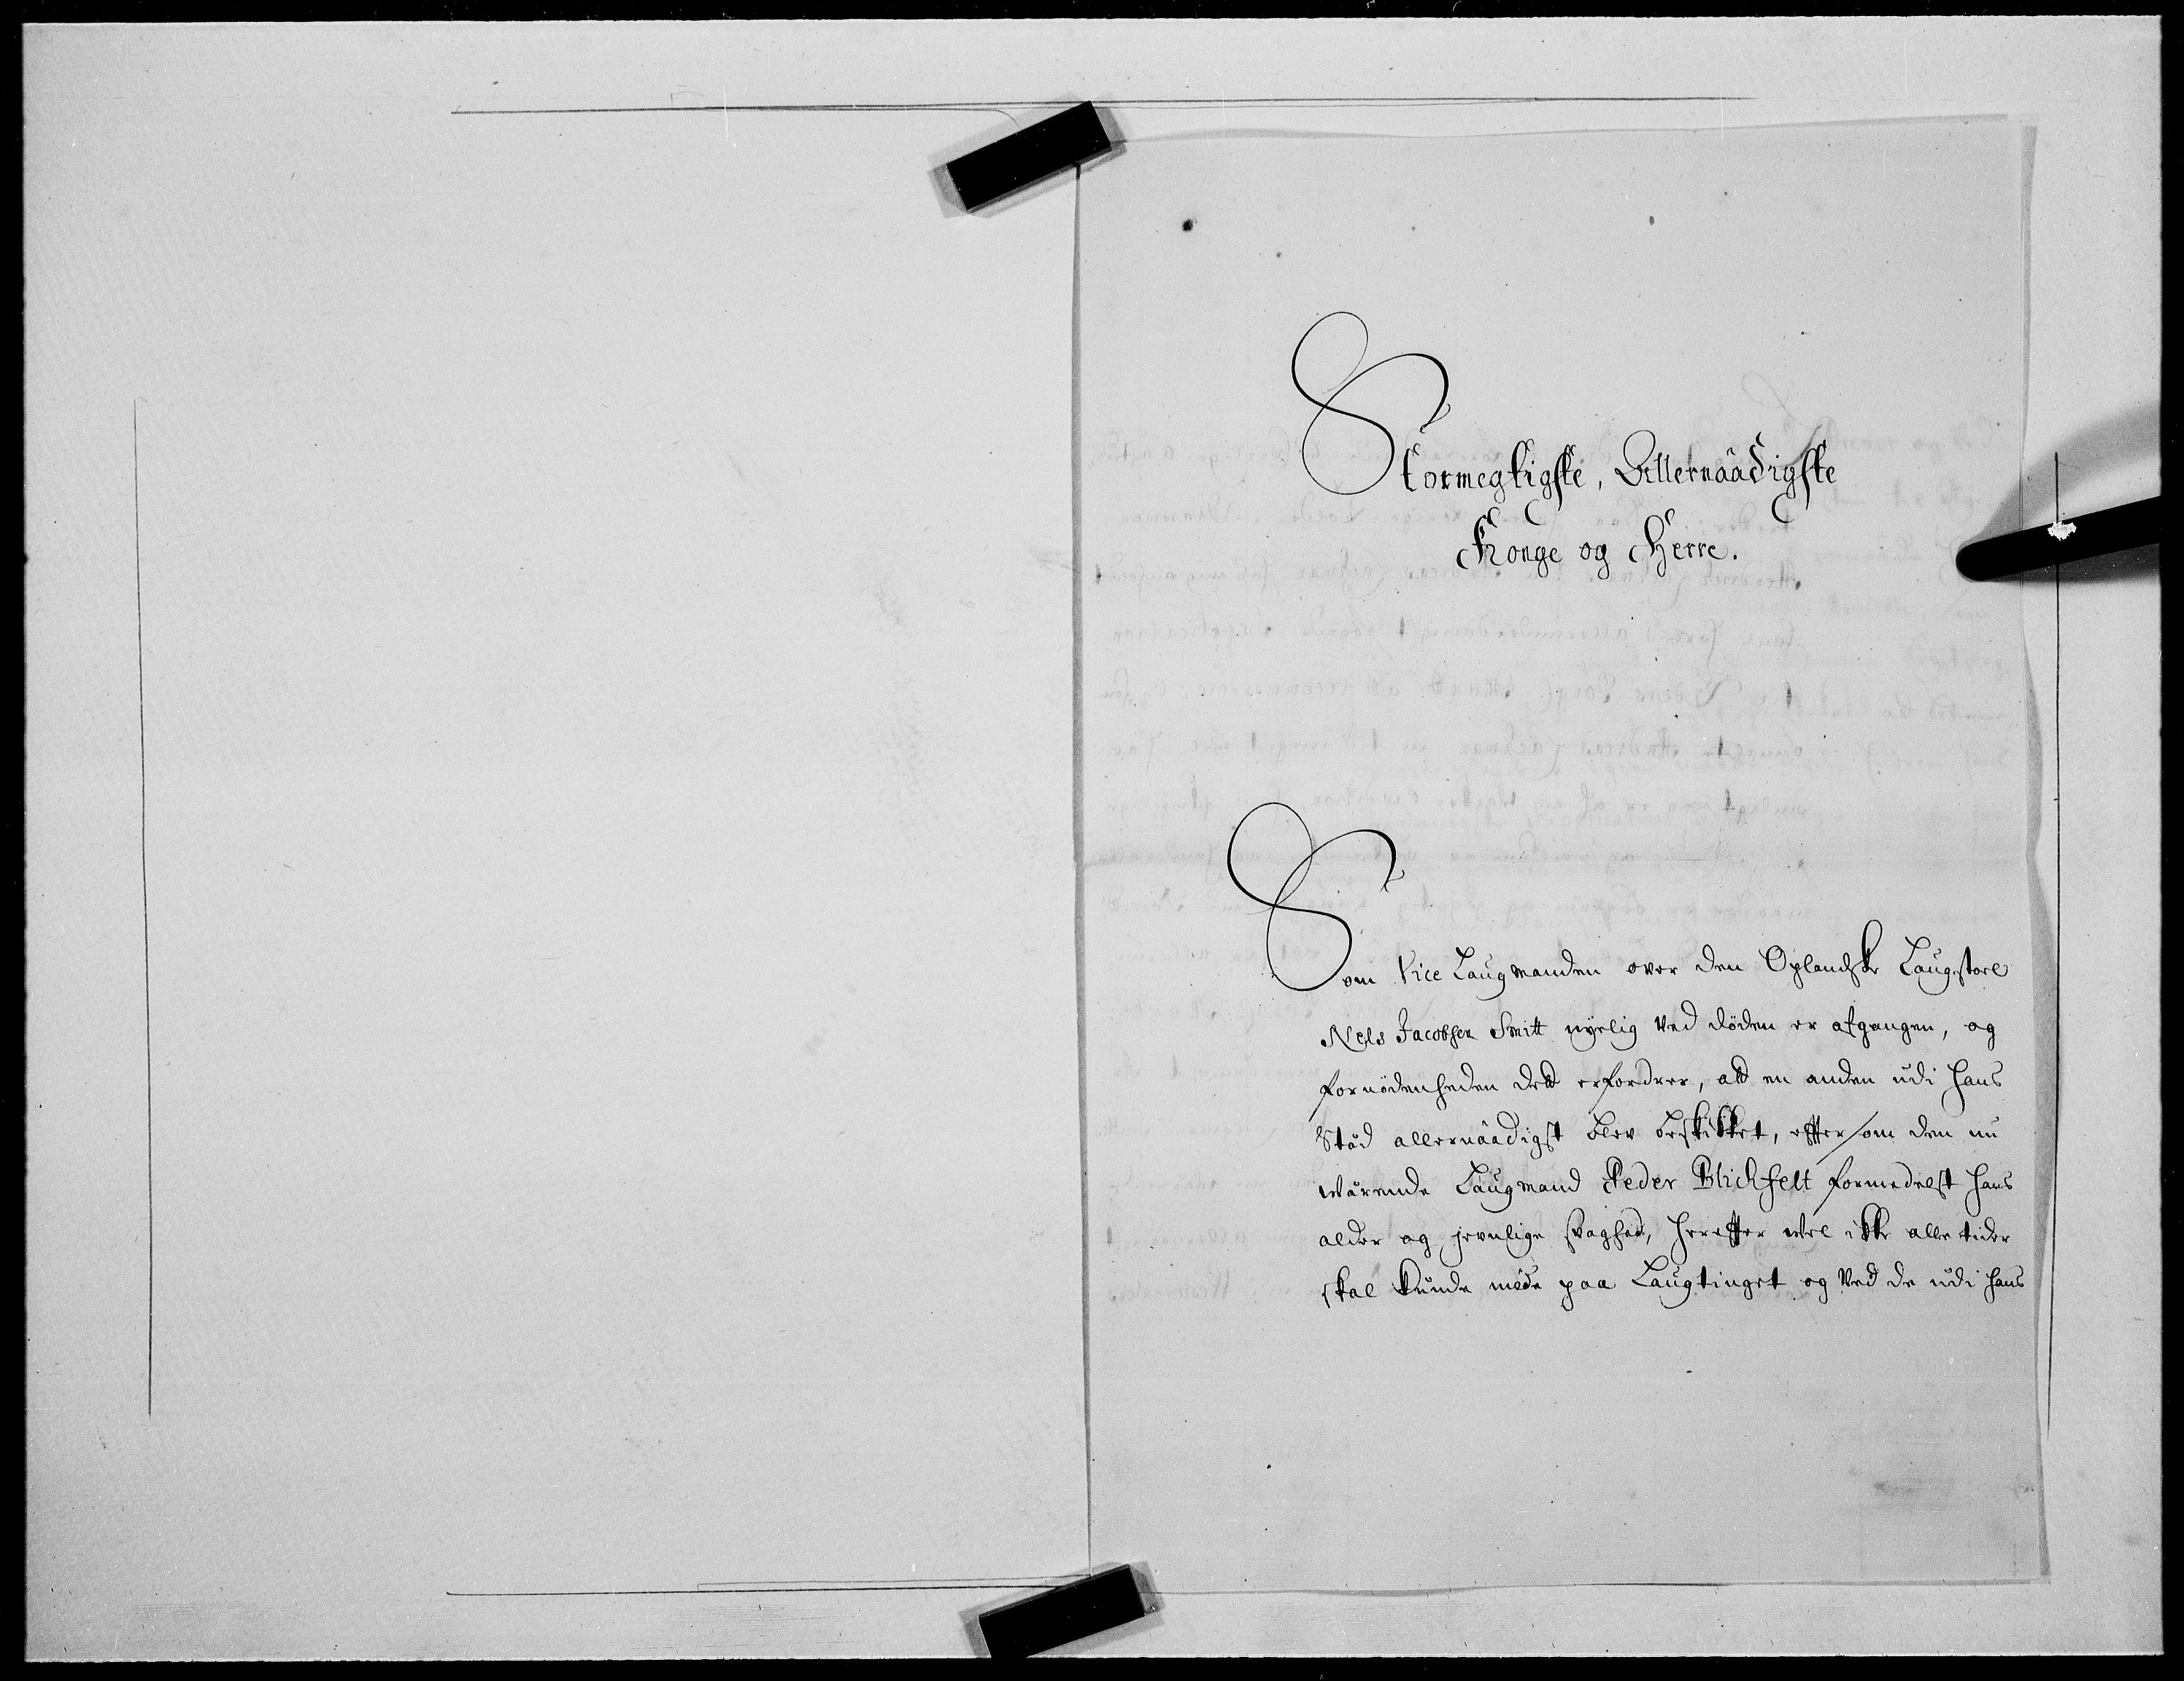 Stormegtigste, Allernåadigste
Konge og Herre.
Som Vice Laugmanden over den Oplandske Laugstoel
Niels Jacobsen Smitt nyelig ved döden er afgangen, og
fornödenheden dett erfordrer, att en anden udi hans
Stæd allernåadigst blev beskikket, efftersom den nu
wærende Laugmand Peder Blichfelt formedelst hans
alder og jevnlige svaghed, hereffter vel ikke alle tider
skal kunde möde paa Laugtinget og ved de udi hans